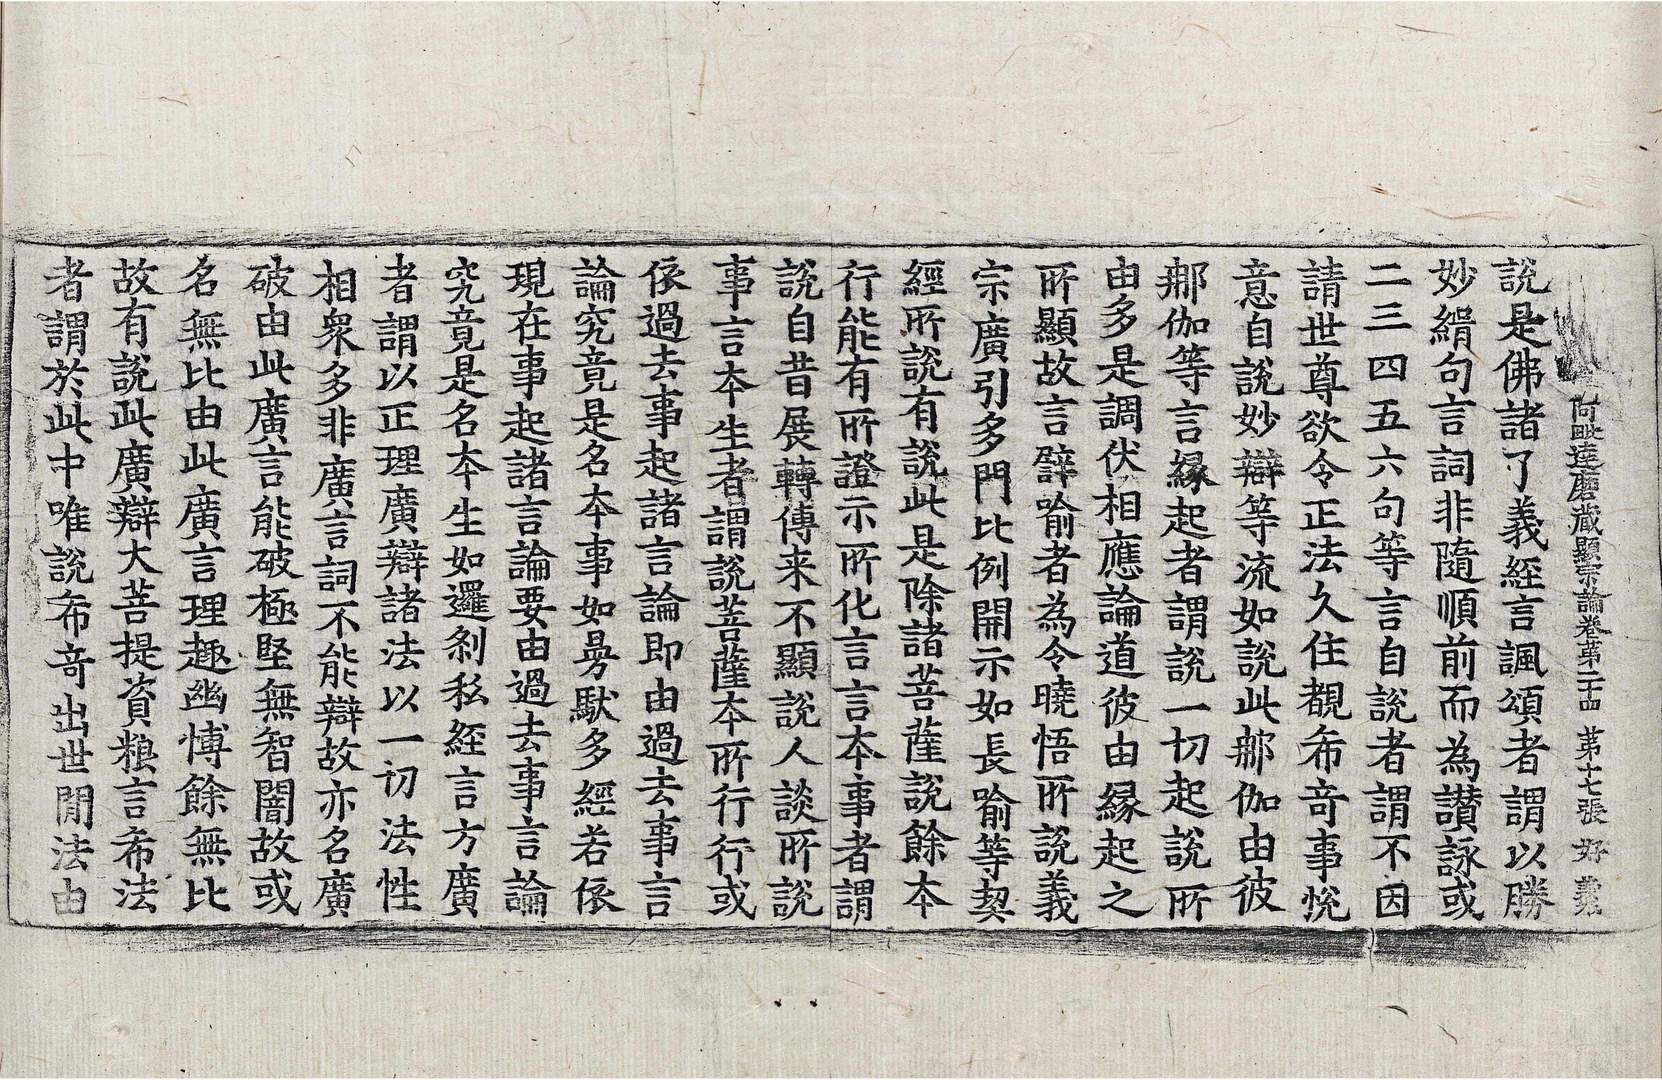 阿毗達磨藏顯宗論卷第二十四 第十七張 好
說是佛諸了義經言諷頌者謂以勝
妙緝句言詞非隨順前而為讃詠或
二三四五六句等言自說者謂不因
請世尊欲令正法久住覩希竒事悅
意自說妙辯等流如說此那伽由彼
那伽等言緣起者謂說一切起說所
由多是調伏相應論道彼由緣起之
所顯故言譬喻者為令曉悟所說義
宗廣引多門比例開示如長喻等契
經所說有說此是除諸菩薩說餘本
行能有所證示所化言言本事者謂
說自昔展轉傳来不顯說人談所說
事言本生者謂說菩薩本所行行或
依過去事起諸言論即由過去事言
論究竟是名本事如曼馱多經若依
現在事起諸言論要由過去事言論
究竟是名本生如邏剎私經言方廣
者謂以正理廣辯諸法以一切法性
相衆多非廣言詞不能辯故亦名廣
破由此廣言能破極堅無智闇故或
名無比由此廣言理趣幽博餘無比
故有說此廣辯大菩提資糧言希法
者謂於此中唯說希竒出世間法由